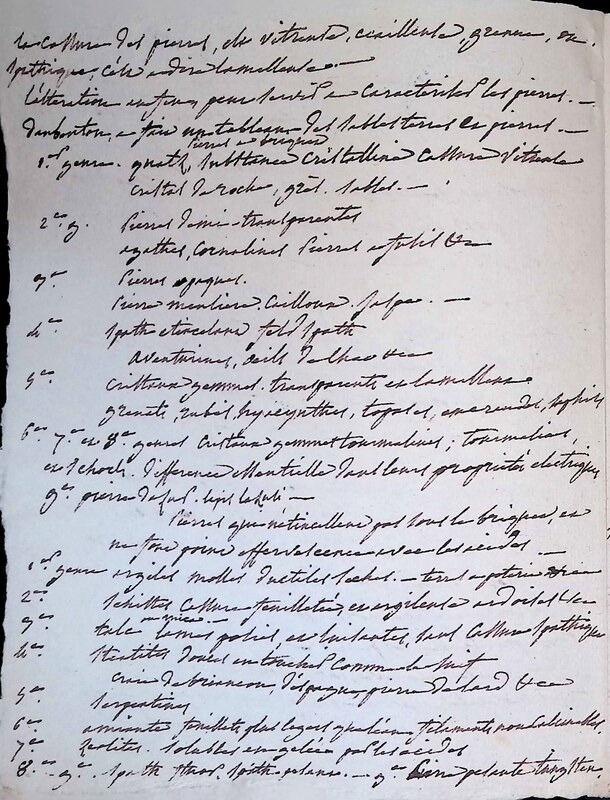 la cassure des pierres, est vitreuse, ecailleuse, grenue, ou
spathique, c'est a dire lamelleuse. —
L'altération enfin peut servir a caracteriser les pierres. —
daubenton, a fait un tableau des sables terres et pierres. —
pierres au briquet
1.er genre. quartz, substance cristalline cassure vitreuse
cristal de roche, grès. sables. —
2.eme g. pierres demi-transparentes
agathes, cornalines pierres a fusil &a —
3.e pierres opaques.
pierre meuliere. cailloux. jaspe. —
4.e spath etincelant feld spath
aventurines, oeils de chat &a
5.e cristaux gemmes transparents et lamelleux
grenats, rubis, hyacynthes, topases, emeraudes, saphirs
6.e 7.e et 8.e genres cristaux gemmes tourmalines; tourmalines,
et schorls. difference essentielle dans leurs proprietés electriques
9.e pierre d'azur. lapis lazuli —
Pierres qui n'etincellent pas sous le briquet, et
ne font point effervescence avec les acides —
1.er genre argiles molles ductiles seches. — terre a poterie &a
2.e schistes cassure feuilletée, et argileuse ardoises &a
3.e talc ou mica — lames polies et luisantes, sans cassure spathique
4.e steatites douces au toucher comme le suif
craie de briancon, d'espagne, pierre de lard &a
5.e serpentines
6.e amiante feuillets plus legers que l'eau, filaments non calcinables
7.e zeolites. solubles en gelée par les acides
8.e g.e spath fluor. spath pesant. — 9.e pierre pesante tungsten.